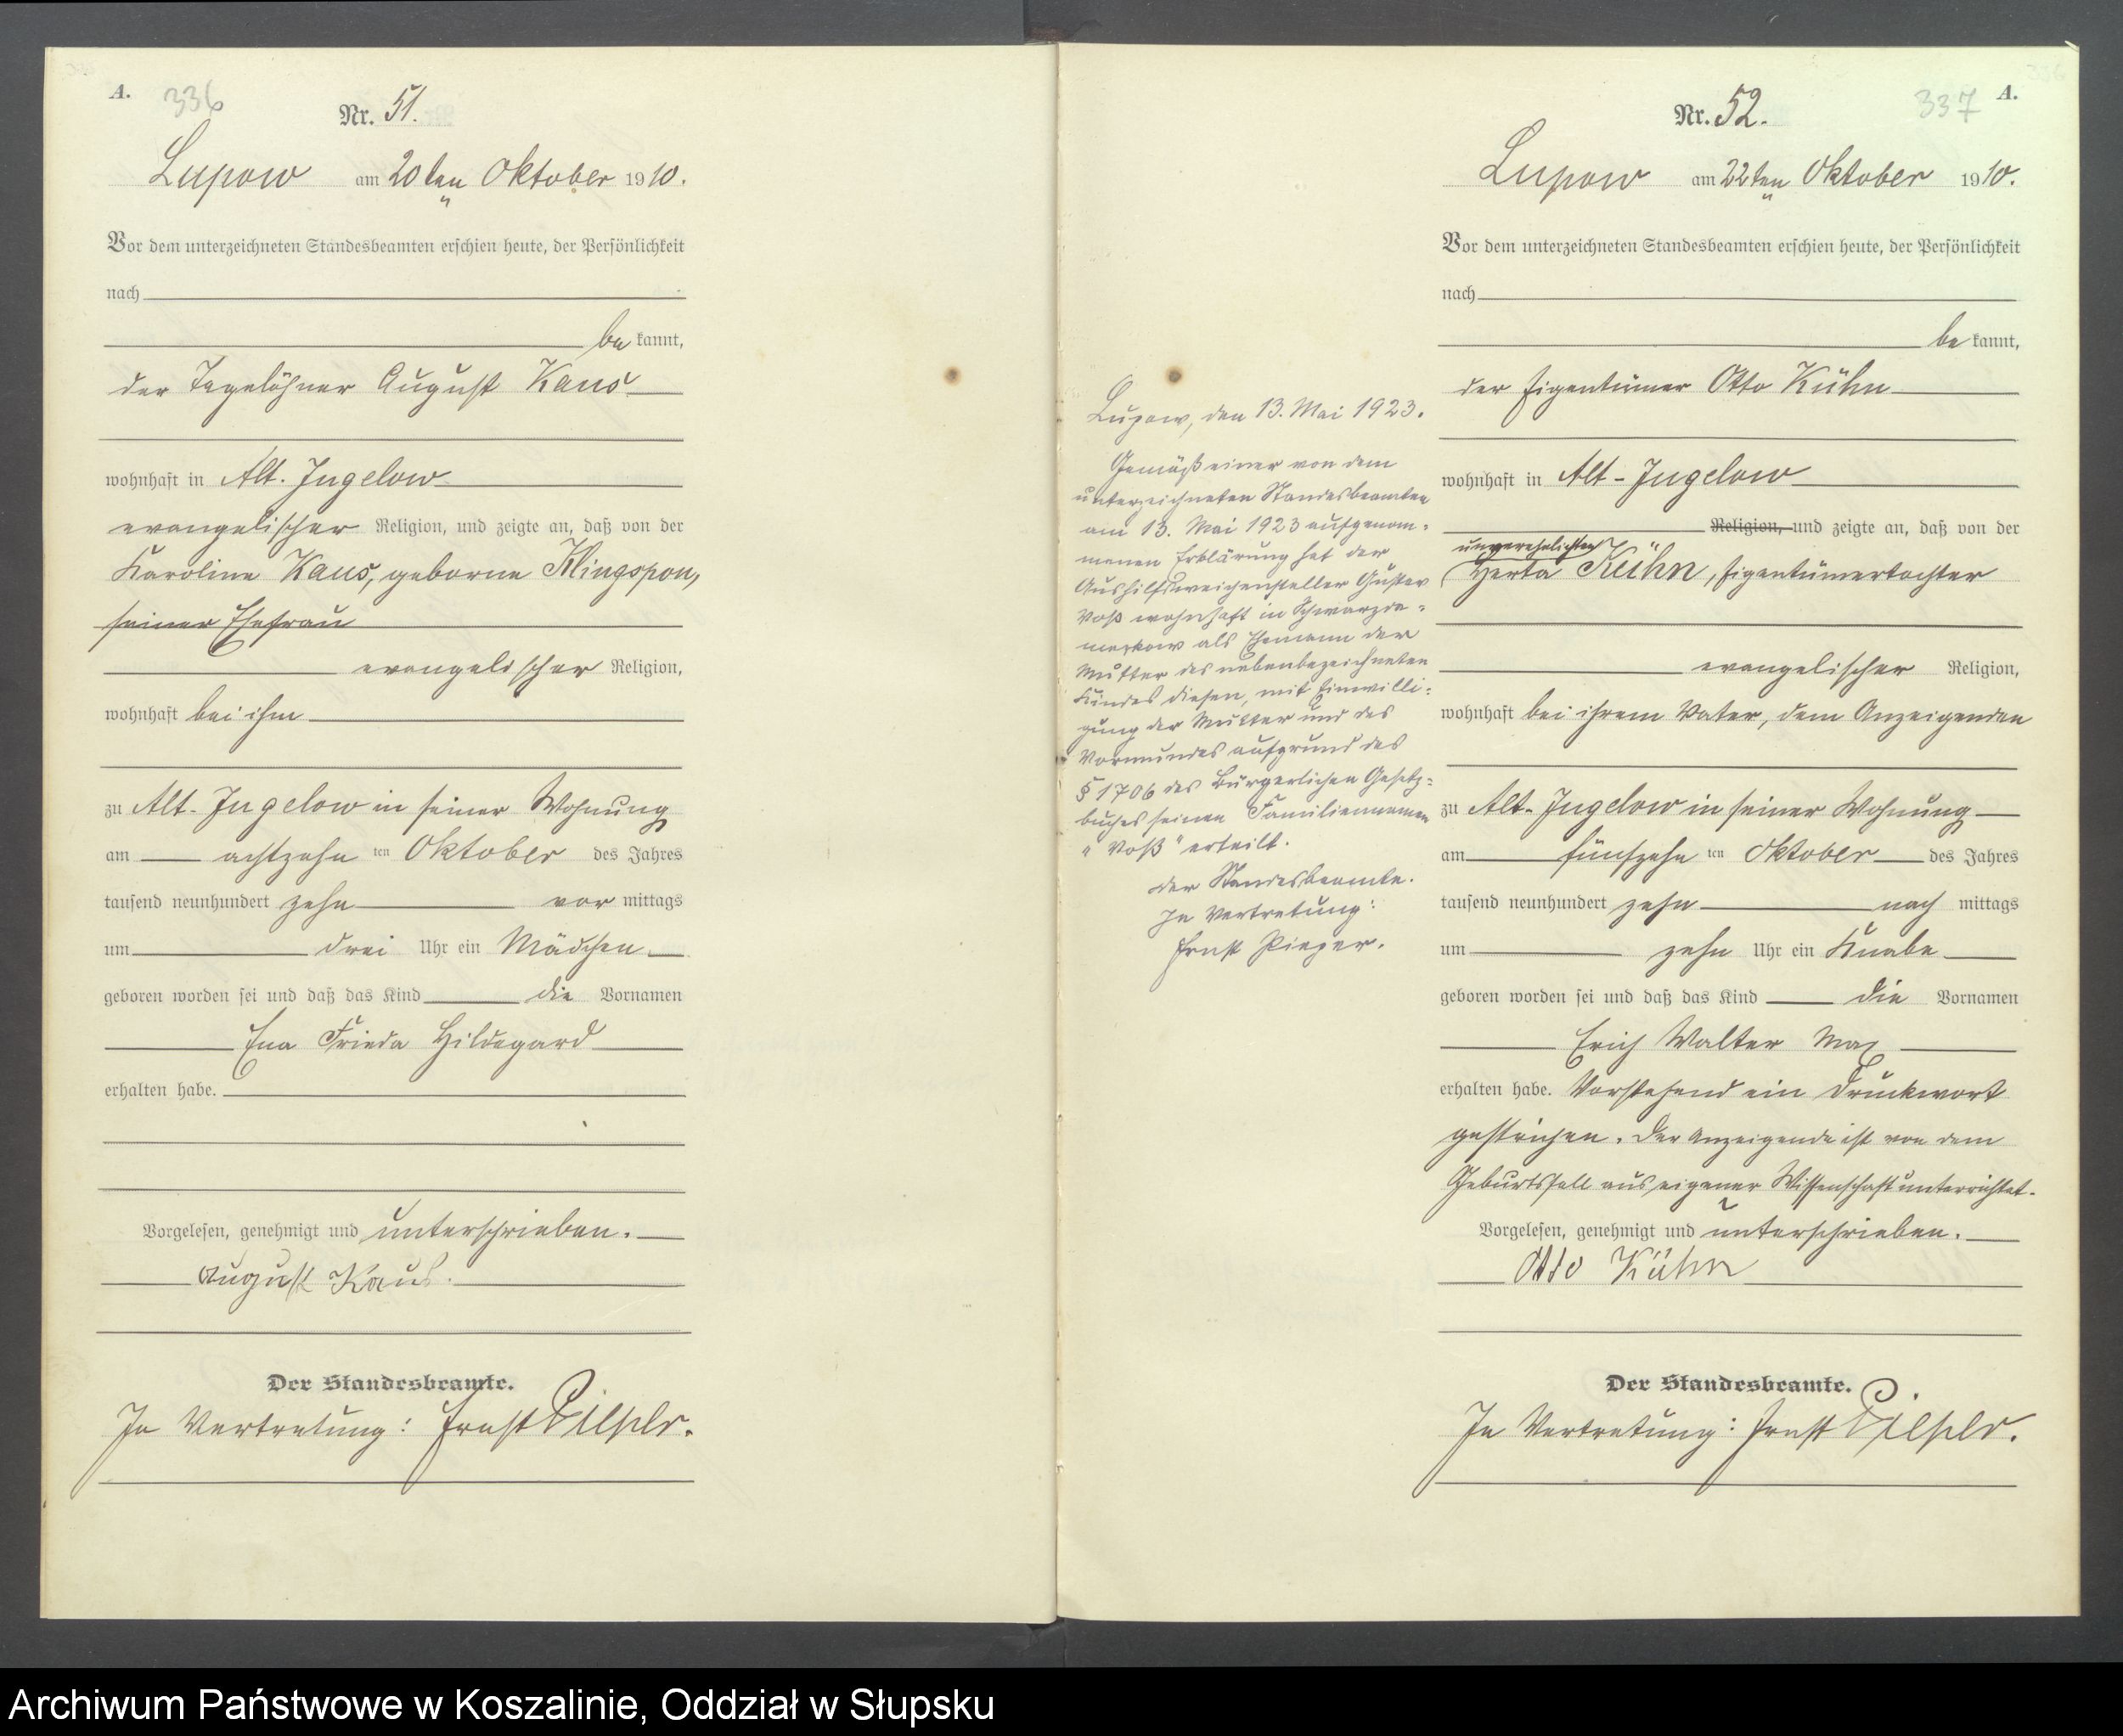 A.
336
Nr. 51.
Lupow am 20ten Oktober 1910.
Vor dem unterzeichneten Standesbeamten erschien heute, der Persönlichkeit
nach
bekannt,
der Tagelöhner August Kaus
wohnhaft in Alt-Jugelow
evangelischer Religion, und zeigte an, daß von der
Karoline Kaus, geborne Klingspon,
seiner Ehefrau
evangelischer Religion,
wohnhaft bei ihm
zu Alt-Jugelow in seiner Wohnung
am achtzehnten Oktober des Jahres
tausend neunhundert zehn vormittags
um drei Uhr ein Mädchen
geboren worden sei und daß das Kind die Vornamen
Ena Frieda Hildegard
erhalten habe.
Vorgelesen, genehmigt und unterschrieben.
August Kaus.
Der Standesbeamte.
In Vertretung: Ernst Pieper.
Lupow, den 13. Mai 1923.
Gemäß einer von dem
unterzeichneten Standesbeamten
am 13. Mai 1923 aufgenom-
menen Erklärung hat der
Aushilfsweichensteller Gustav
Voß wohnhaft in Schwarzda-
merkow als Ehemann der
Mutter des nebenbezeichneten
Kindes diesem, mit Einwilli-
gung der Mutter und des
Vormundes aufgrund des
§ 1706 des Bürgerlichen Gesetz-
buches seinen Familiennamen
"Voß" erteilt.
Der Standesbeamte.
In Vertretung:
Ernst Pieper.
A.
337
Nr. 52.
Lupow am 22ten Oktober 1910.
Vor dem unterzeichneten Standesbeamten erschien heute, der Persönlichkeit
nach
bekannt,
der Eigentümer Otto Kühn
wohnhaft in Alt-Jugelow
Religion, und zeigte an, daß von der
unverehelichten
Herta Kühn, Eigentümertochter
evangelischer Religion,
wohnhaft bei ihrem Vater, dem Anzeigenden
zu Alt-Jugelow in seiner Wohnung
am fünfzehnten Oktober des Jahres
tausend neunhundert zehn nachmittags
um zehn Uhr ein Knabe
geboren worden sei und daß das Kind die Vornamen
Erich Walter Max
erhalten habe. Vorstehend ein Druckwort
gestrichen. Der Anzeigende ist von dem
Geburtsfall aus eigener Wissenschaft unterrichtet.
Vorgelesen, genehmigt und unterschrieben.
Otto Kühn
Der Standesbeamte.
In Vertretung: Ernst Pieper.
Archiwum Państwowe w Koszalinie, Oddział w Słupsku